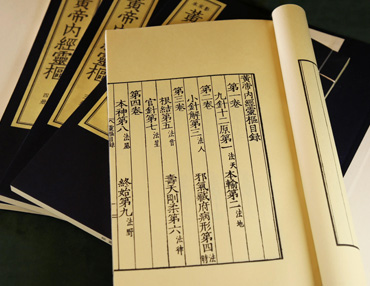 黃帝內經靈樞目錄
第一卷
九針十二原第一 法天 本輸第二 法地
第二卷
小針解第三 法人 邪氣藏府病形第四 法時
第三卷
根結第五 法音 壽夭剛柔第六 法律
官針第七 法星
第四卷
本神第八 法風 終始第九 法野
黃帝內經靈樞
黃帝內經靈樞